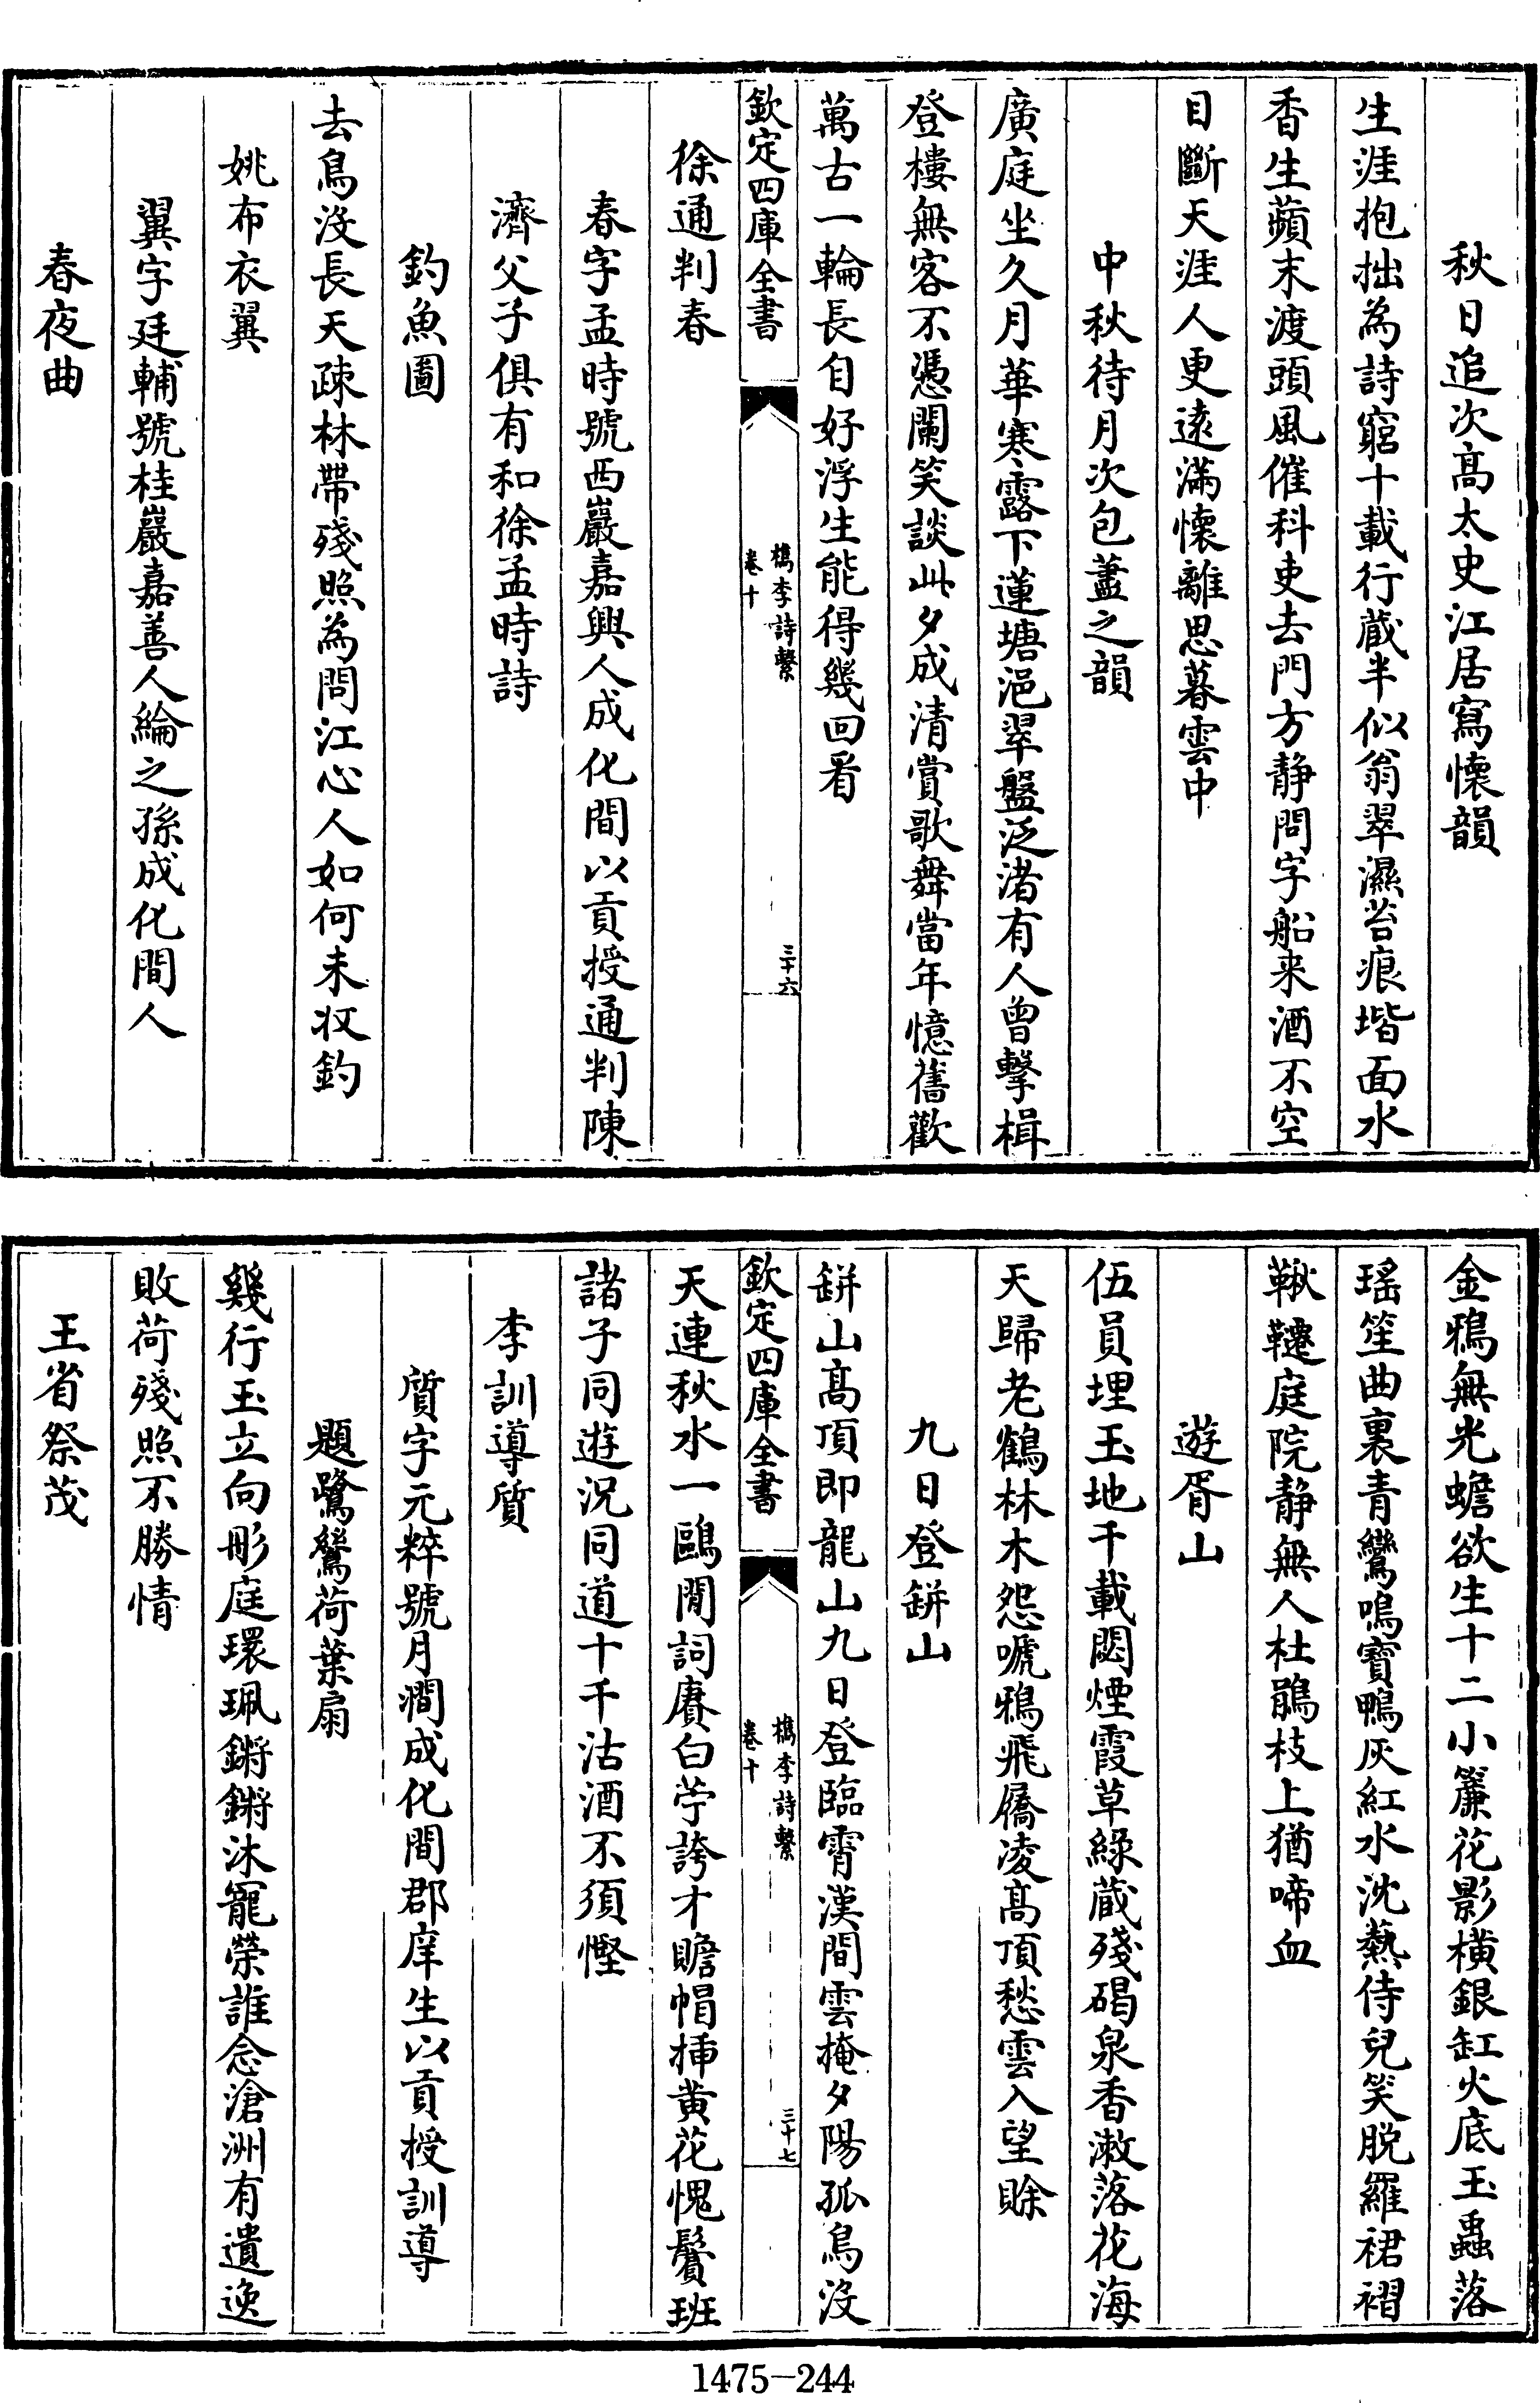 秋日追次髙太史江居寫懷韻
生涯抱拙為詩窮十載行蔵半似翁翠濕苔痕堦面水
香生蘋末渡頭風催科吏去門方静問字船来酒不空
目斷天涯人更逺滿懷離思暮雲中
中秋待月次包藎之韻
廣庭坐久月華寒露下蓮塘浥翠盤泛渚有人曾擊楫
登樓無客不憑闌笑談此夕成清賞歌舞當年憶舊歡
萬古一輪長自好浮生能得幾回看
欽定四庫全書
檇李詩繫
卷十
三十六
徐通判春
春字孟時號西巖嘉興人成化間以貢授通判陳
濟父子俱有和徐孟時詩
釣魚圖
去鳥没長天疎林帶殘照為問江心人如何未收釣
姚布衣翼
翼字廷輔號桂巖嘉善人綸之孫成化間人
春夜曲
金鴉無光蟾欲生十二小簾花影橫銀缸火底玉蟲落
瑤笙曲裏青鸞鳴寶鴨灰紅水沈爇侍兒笑脱羅裙褶
鞦韆庭院静無人杜鵑枝上猶啼血
遊胥山
伍員埋玉地千載閟煙霞草綠蔵殘碣泉香漱落花海
天歸老鶴林木怨嗁鴉飛屩凌髙頂愁雲入望賖
九日登缾山
缾山髙頂即龍山九日登臨霄漢間雲掩夕陽孤鳥没
欽定四庫全書
檇李詩繫
卷十
三十七
天連秋水一鷗閒詞賡白苧誇才贍帽挿黄花愧鬢班
諸子同遊況同道十千沽酒不須慳
李訓導質
質字元粹號月澗成化間郡庠生以貢授訓導
題鷺鷥荷葉扇
幾行玉立向彤庭環珮鏘鏘沐寵榮誰念滄洲有遺逸
敗荷殘照不勝情
王省祭茂
1475-244